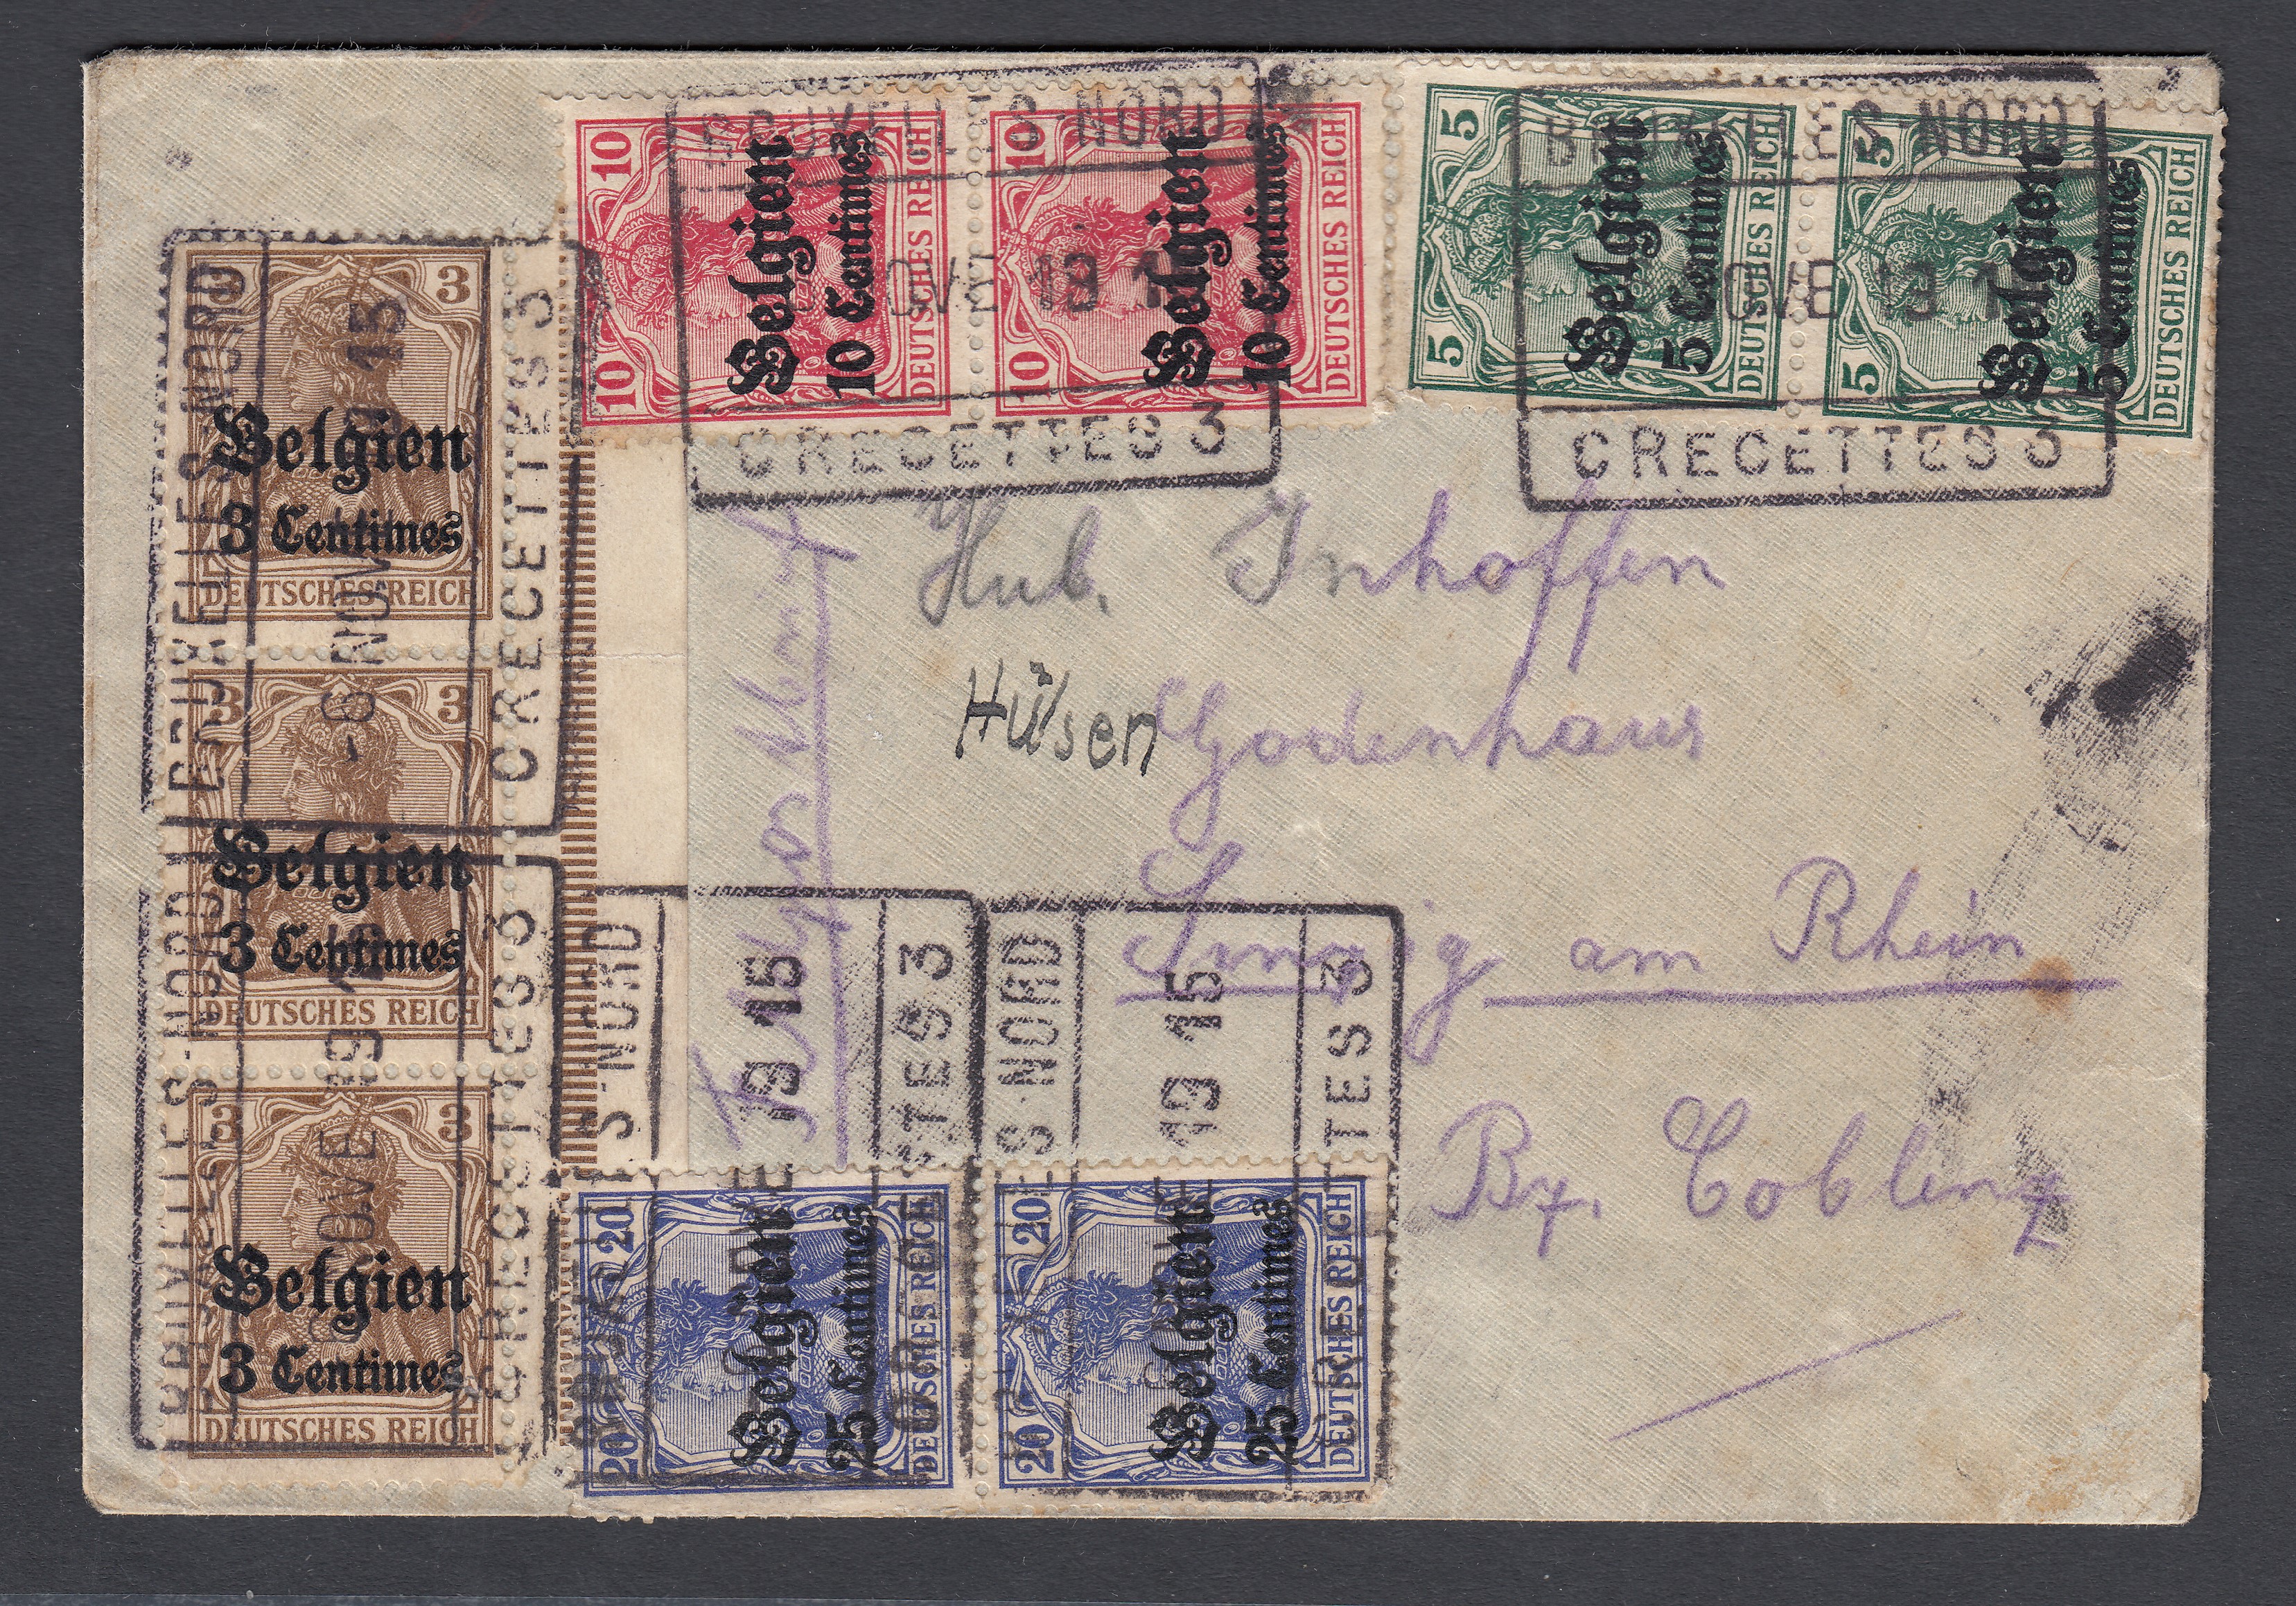 BRUXELLES-NORD
NOVE 19 1
C RECETTES 3
BRUXELLES-NORD
OVE 19 1
C RECETTES 3
10 10
Belgien
10 Centimes
DEUTSCHES REICH
10 10
Belgien
10 Centimes
DEUTSCHES REICH
5 5
Belgien
5 Centimes
DEUTSCHES REICH
5 5
Belgien
5 Centimes
DEUTSCHES REICH
BRUXELLES-NORD
-6 NOVE 19 15
C RECETTES 3
3
Belgien
3 Centimes
DEUTSCHES REICH
3 3
Belgien
3 Centimes
DEUTSCHES REICH
3 3
Belgien
3 Centimes
DEUTSCHES REICH
BRUXELLES-NORD
6 NOVE 19
C RECETTES 3
Hub. Inhoffen
Hülsen Godenhaus
Sinzig am Rhein
Bz. Coblenz
BRUXELLES-NORD
NOVE 19 15
C RECETTES 3
BRUXELLES-NORD
NOVE 19 15
C RECETTES 3
20 20
Belgien
25 Centimes
DEUTSCHES REICH
20 20
Belgien
25 Centimes
DEUTSCHES REICH